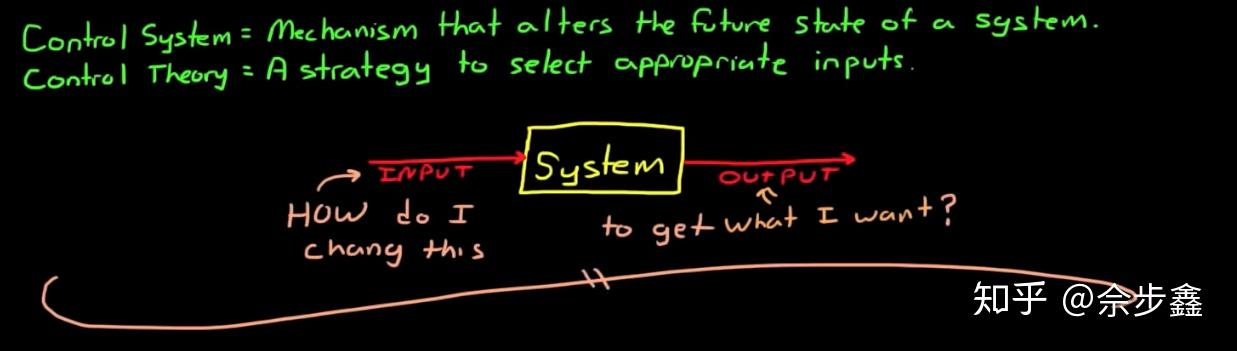 Control System = Mechanism that alters the future state of a system.
Control Theory = A strategy to select appropriate inputs.
System
INPUT
OUTPUT
HOW do I
chang this
to get what I want?
知乎 @佘步鑫